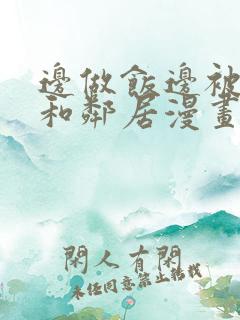 邊做飯邊被
和鄰居漫畫
閑人有閑
未经同意禁止转载